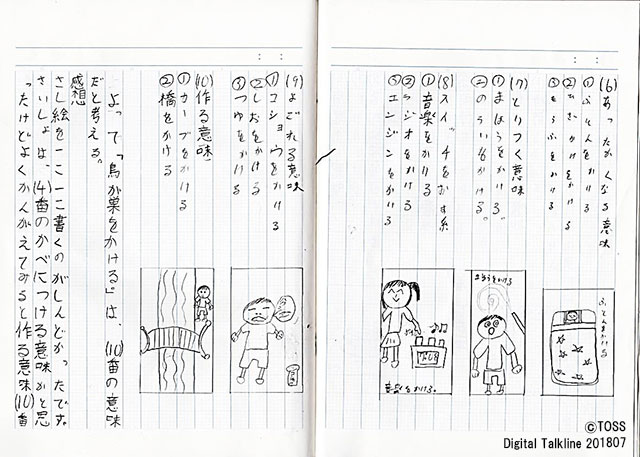 (6)あったかくなる意味
①ふとんをかける
②ひざかけをかける
③もうふをかける
ふとんをかける
(7)とりつく意味
①まほうをかける。
②のろいをかける。
まほうをかける
(8)スイッチをおす系
①音楽をかける
②ラジオをかける
③エンジンをかける
音楽をかける。
(9)よごれる意味
①コショウをかける
②しおをかける
③つゆをかける
(10)作る意味
①カーブをかける
②橋をかける
よって「鳥が巣をかける」は、(10)番の意味
だと考える。
感想
さし絵を一こ一こ書くのがしんどかったです。
さいしょは、(4)番のかべにつける意味かと思
ったけどよくかんがえてみると作る意味(10)番
©TOSS
Digital Talkline 201807